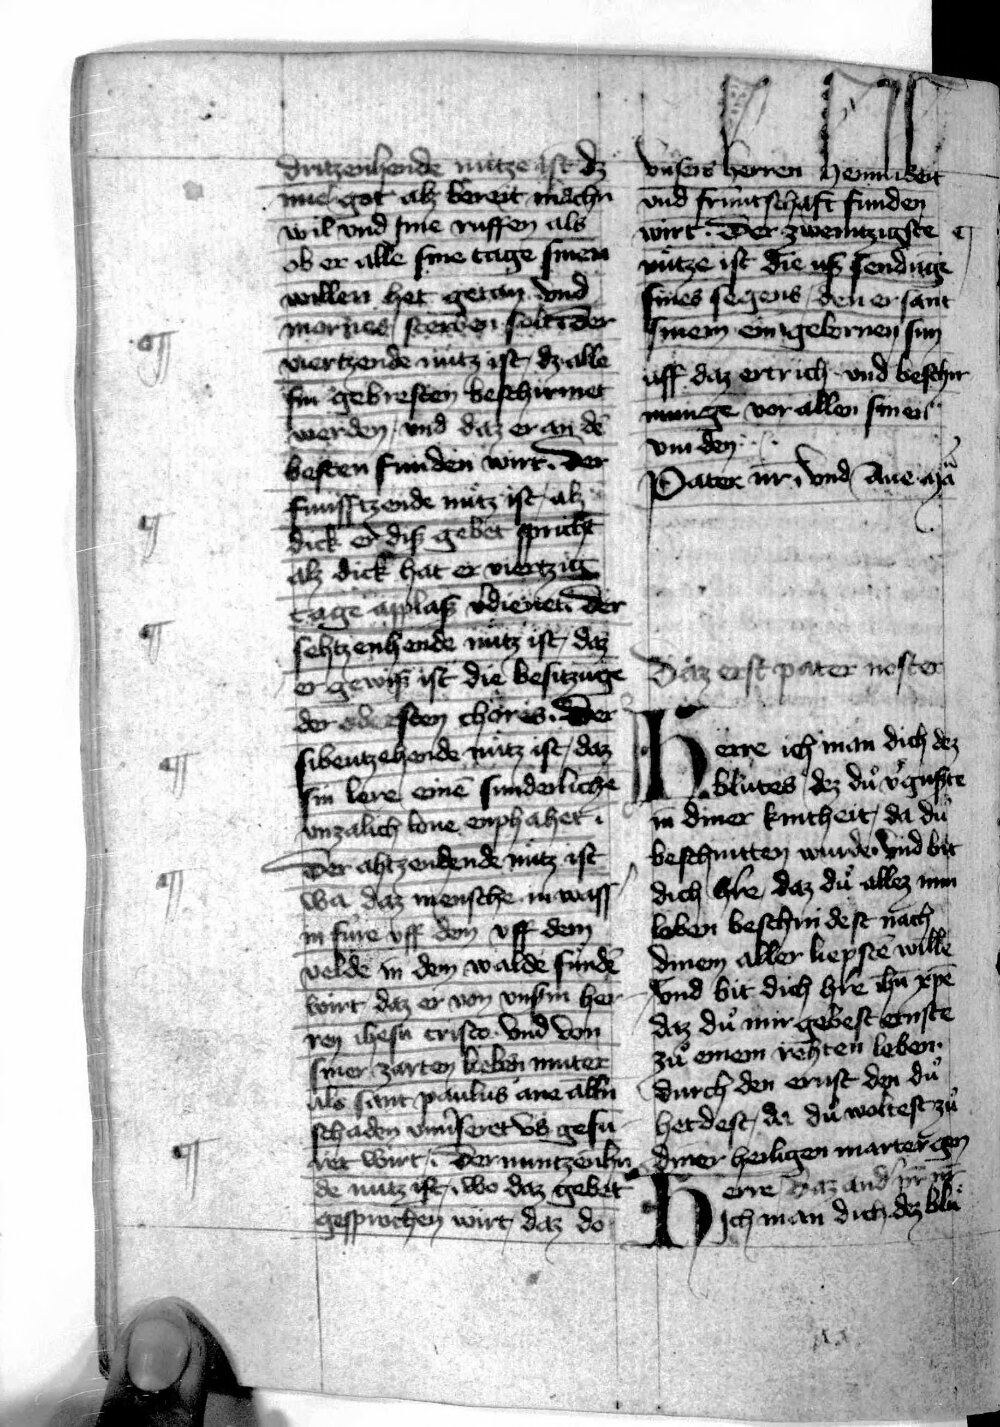 dritzenhende nutze ist dz
ime got alz bereit machn
wil vnd sine ruffen als
ob er alle sine tage sinen
willen het getan vnd
mornes sterben solt Der
viertzende nútz ist dz alle
sin gebresten beschirmet
werden vnd daz er an dē
besten funden wirt. Der
funfftzende nútz ist alz
dick er diß gebet spricht
alz dick hat er viertzig
tage applaß v̄dienet. Der
sehtzenhende nutz ist, daz
er gewiß ist die besitzūge
der obersten chôres. Der
sibentzehende nútz ist, daz
sin lere einē sunderliche
vnzalich lone enphahet.
Der ahtzendende nútz ist
wa daz mensche in wass
in fúre vff dem vff dem
velde in dem walde fundē
wirt, daz er von vnsm̄ her
ren ihesu cristo vnd von
siner zarten lieben muter
als sant paulus ane alln
schaden vnuseret vs gefu
ret wirt. Der nuntzenhn
de nutz ist, wo daz gebet
gesprochen wirt, daz do
vnsers herren heimlikeit
vnd fruntschaft funden
wirt. Der zwentzigste
nútze ist die uß sendūge
sines segens, den er sant
sinem eingebornen sun
uff daz ertrich vnd beschir
munge vor allen sinen
vinden
Pater nr̄. vnd Aue mā
Daz erst pater noster
Herre ich man dich dez
blutes dez dů v̄gußte
in diner kintheit, da dů
beschnitten wurde. Vnd bit
dich hr̄e, daz dů allez min
leben beschnidest nach
dinem aller liepstē wille
Vnd bit dich hr̄e ihū xp̄e
daz dů mir gebest ernste
zů einem rehten leben
durch den ernst den dů
hetdest, da dů woltest zů
diner heiligen marter gen
Daz and pr̄ nr̄
Herre
Ich man dich dez blů